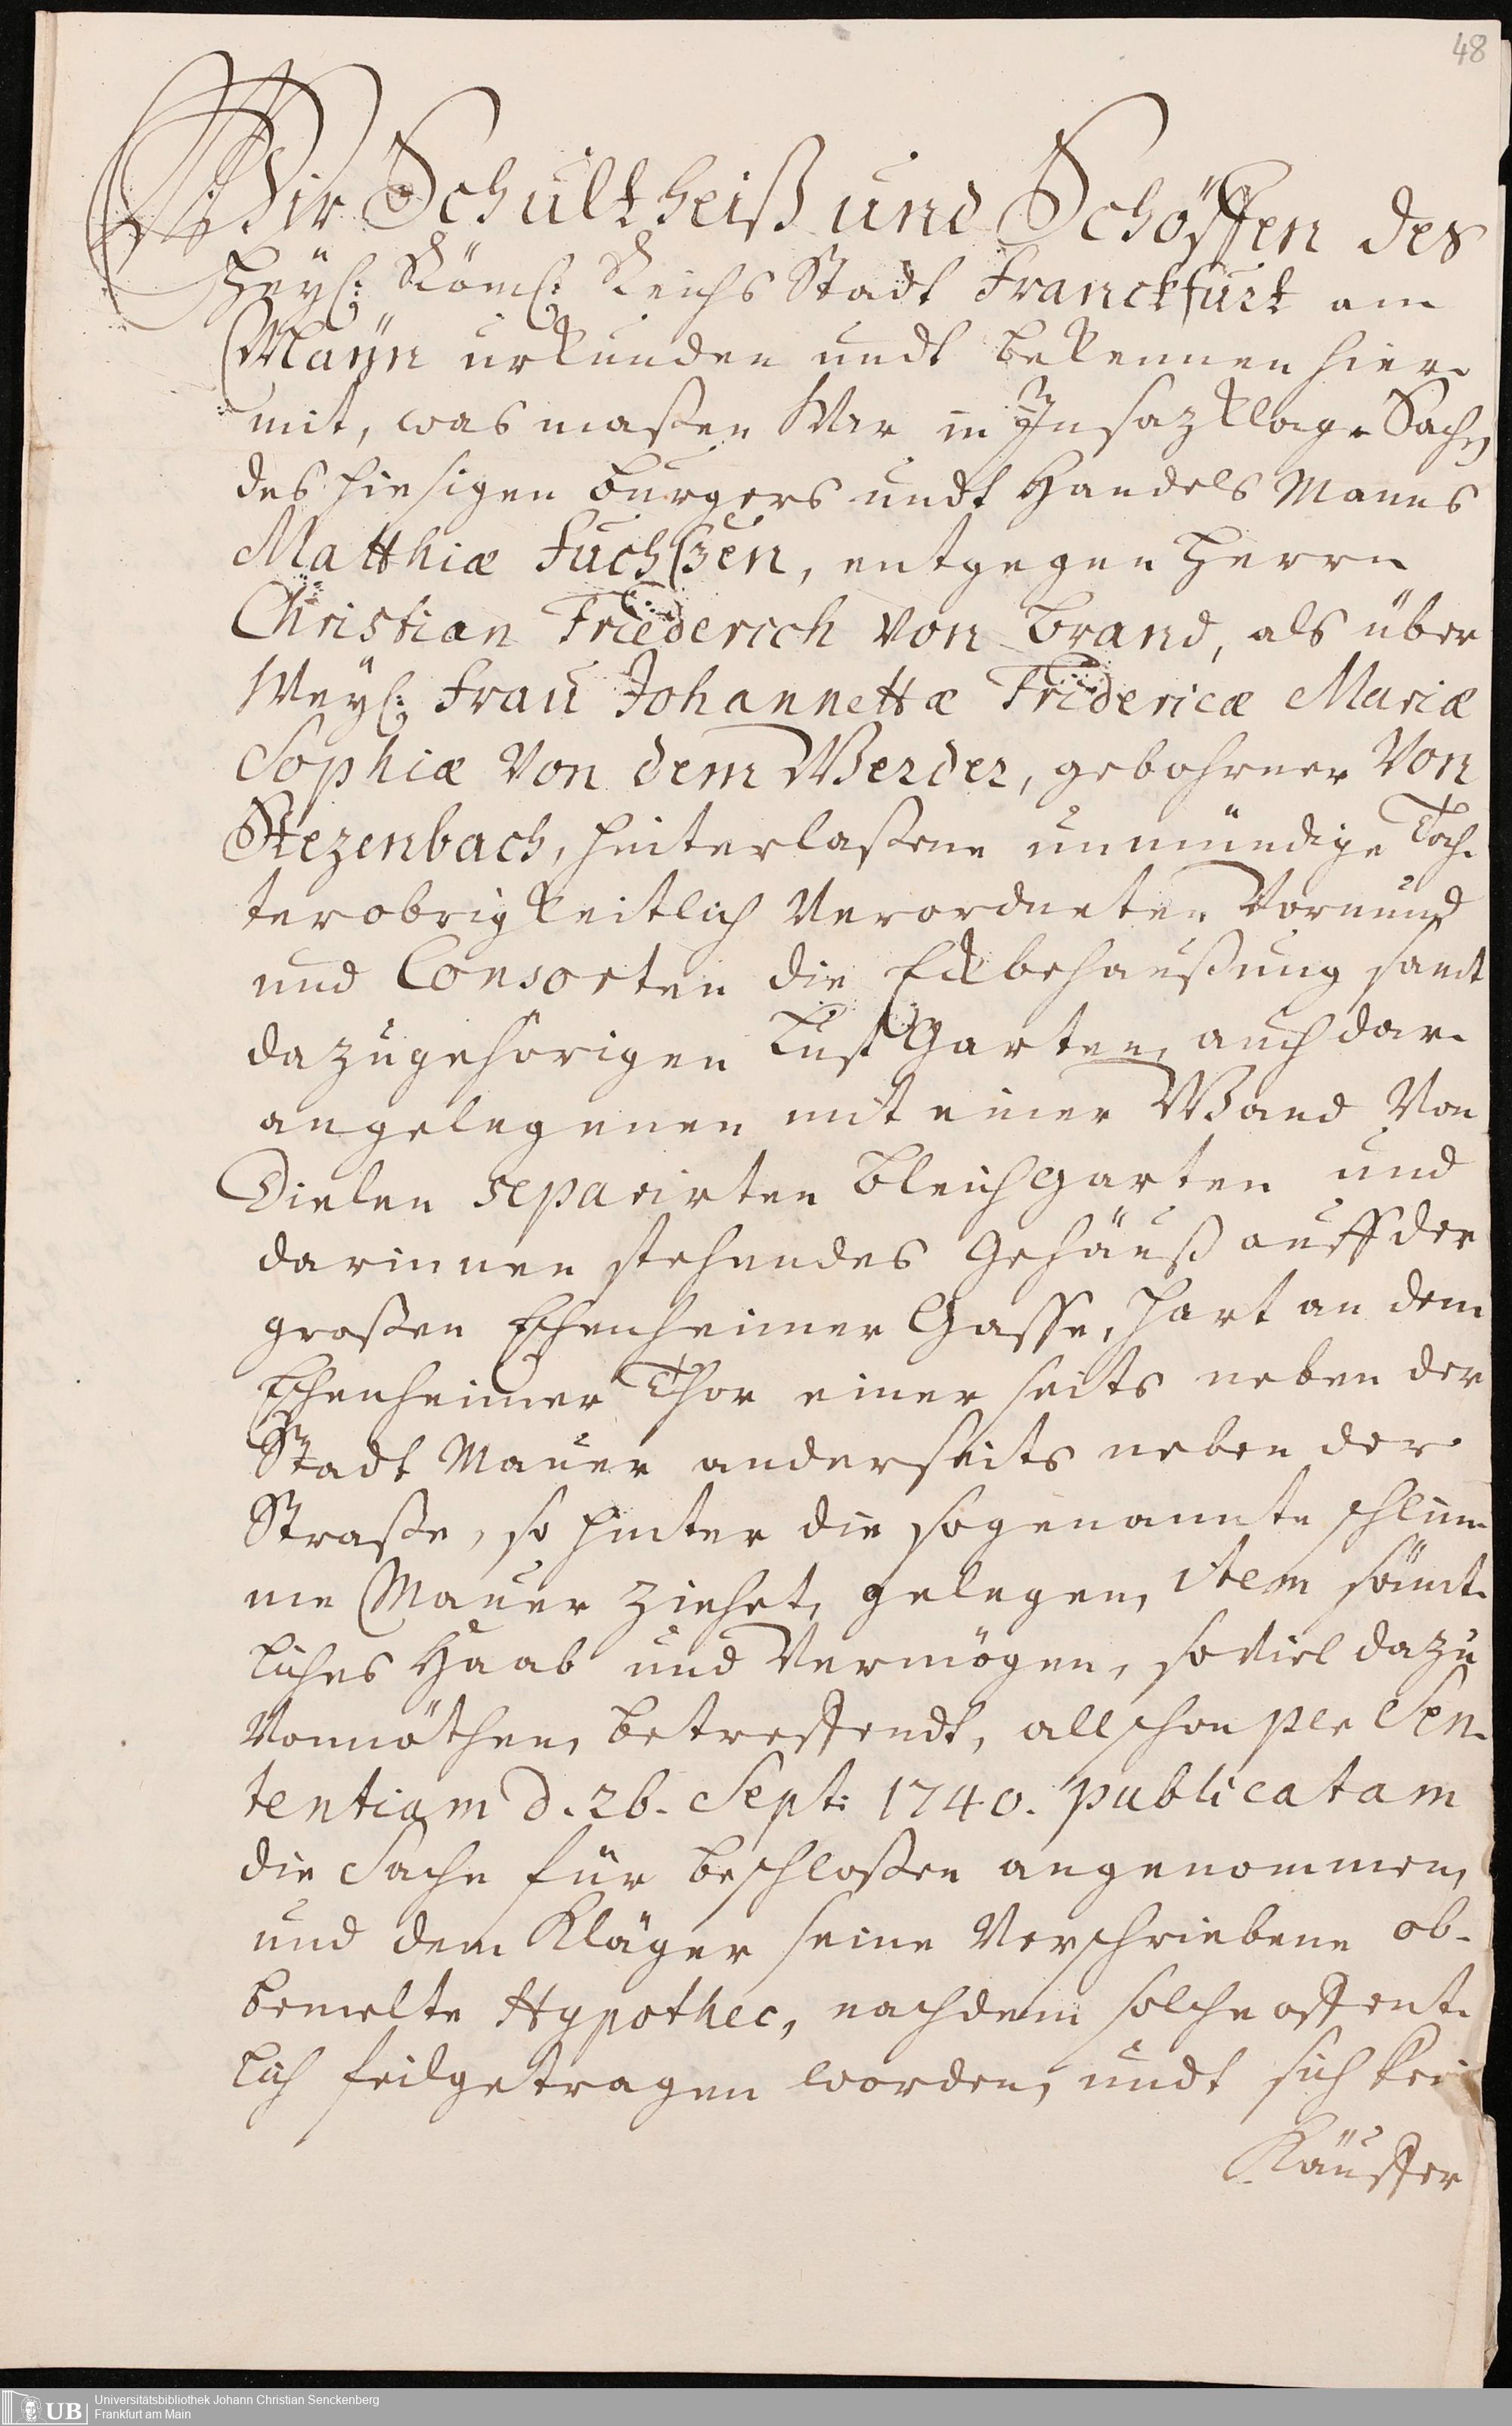 48
Wir Schultheiß und Schöffen des
Heyl: Röml: Reichs Stadt Franckfurt am
Mayn urkunden undt bekennen hier-
mit, was maßen Wir in Insazklage Sachen
des hiesigen burgers undt Handels Manns
Matthiæ Fuchßen, entgegen Herrn
Christian Friederich von Brand, als über
Weyl: Frau Johannettæ Fridericæ Mariæ
Sophiæ Von dem Werder, gebohrner Von
Stezenbach, hinterlaßene unmündige Toch-
ter obrigkeitlich Verordneten Vormund
und Consorten die Eckbehaußung samt
dazugehörigen Lust Garten, auch dar-
angelegenen mit einer Wand Von
Dielen separirten bleichgarten und
darinnen stehendes Gehäuß auff der
großen Eschenheimer Gasse, hart an dem
Eschenheimer Thor einer seits neben der
Stadt Mauer anderseits neben der
Straße, so hinter die sogenannte schlim-
me Mauer ziehet, gelegen, item sämt-
liches Haab und Vermögen, soviel dazu
Vonnöthen, betreffendt, allschon per Sen-
tentiam d. 26. Sept: 1740. publicatam
die Sache für beschloßen angenommen,
und dem Kläger seine Verschriebene ob-
bemelte Hypothec, nachdem solche offent-
lich feilgetragen worden, undt sich kein
Käuffer
UB
Universitätsbibliothek Johann Christian Senckenberg
Frankfurt am Main